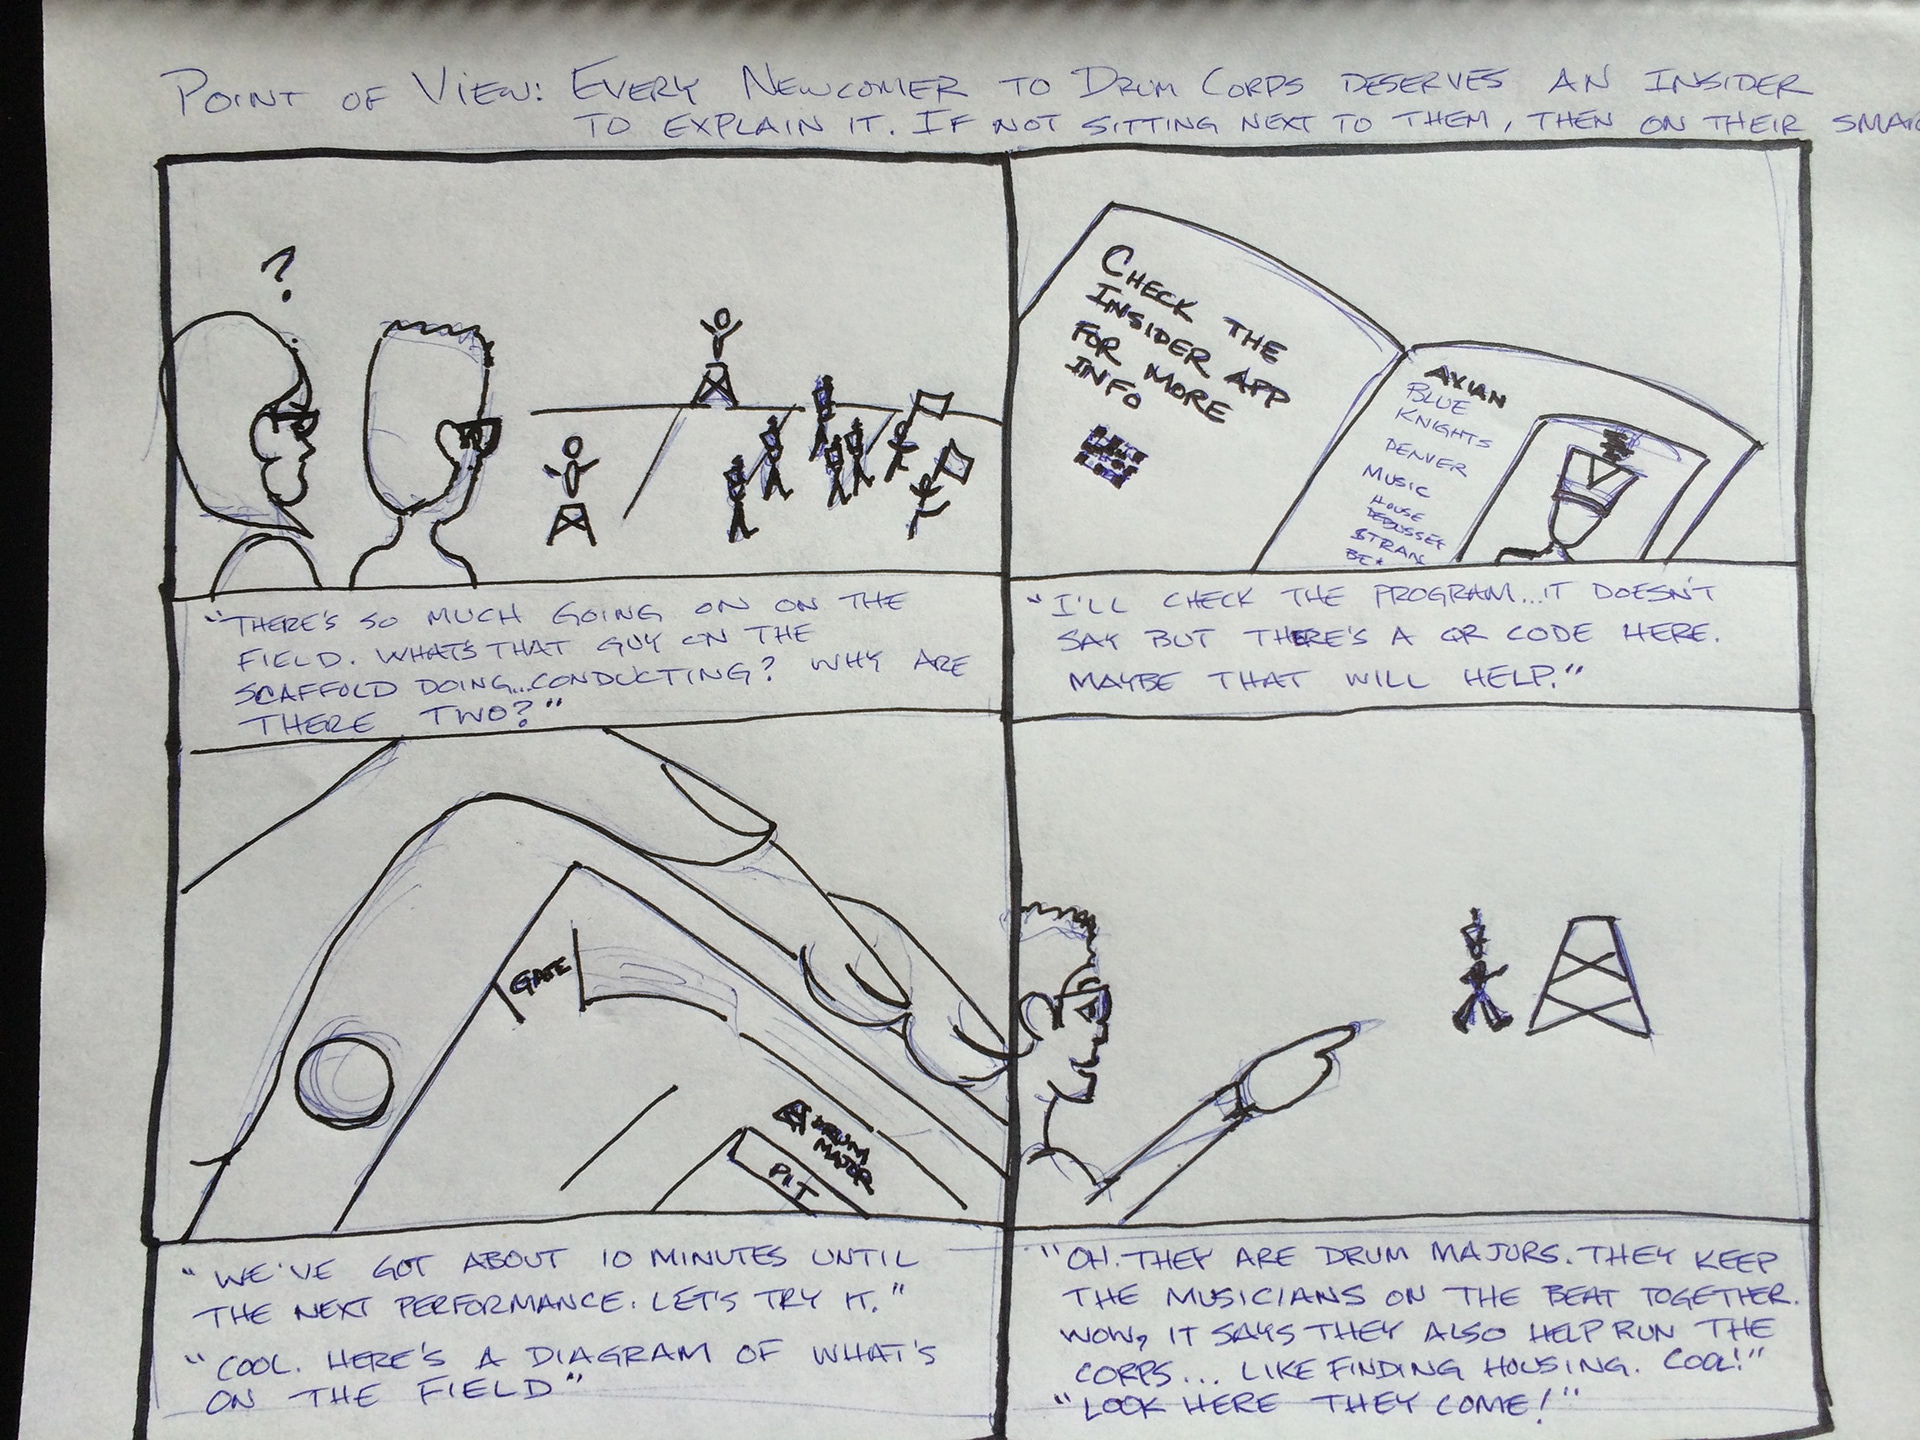 POINT OF VIEW: EVERY NEWCOMER TO DRUM CORPS DESERVES AN INSIDER
TO EXPLAIN IT. IF NOT SITTING NEXT TO THEM, THEN ON THEIR
?
CHECK THE
INSIDER APP
FOR MORE
INFO
AVIAN
BLUE
KNIGHTS
DENVER
MUSIC
HOUSE
DEBUSSEY
"THERE'S SO MUCH GOING ON ON THE
FIELD. WHAT'S THAT GUY ON THE
SCAFFOLD DOING...CONDUCTING? WHY ARE
THERE TWO?"
"I'LL CHECK THE PROGRAM...IT DOESN'T
SAY BUT THERE'S A QR CODE HERE.
MAYBE THAT WILL HELP."
GATE
DRUM
MAJOR
PIT
"WE'VE GOT ABOUT 10 MINUTES UNTIL
THE NEXT PERFORMANCE. LET'S TRY IT."
"COOL. HERE'S A DIAGRAM OF WHAT'S
ON THE FIELD"
"OH. THEY ARE DRUM MAJORS. THEY KEEP
THE MUSICIANS ON THE BEAT TOGETHER.
WOW, IT SAYS THEY ALSO HELP RUN THE
CORPS... LIKE FINDING HOUSING. COOL!"
"LOOK HERE THEY COME!"